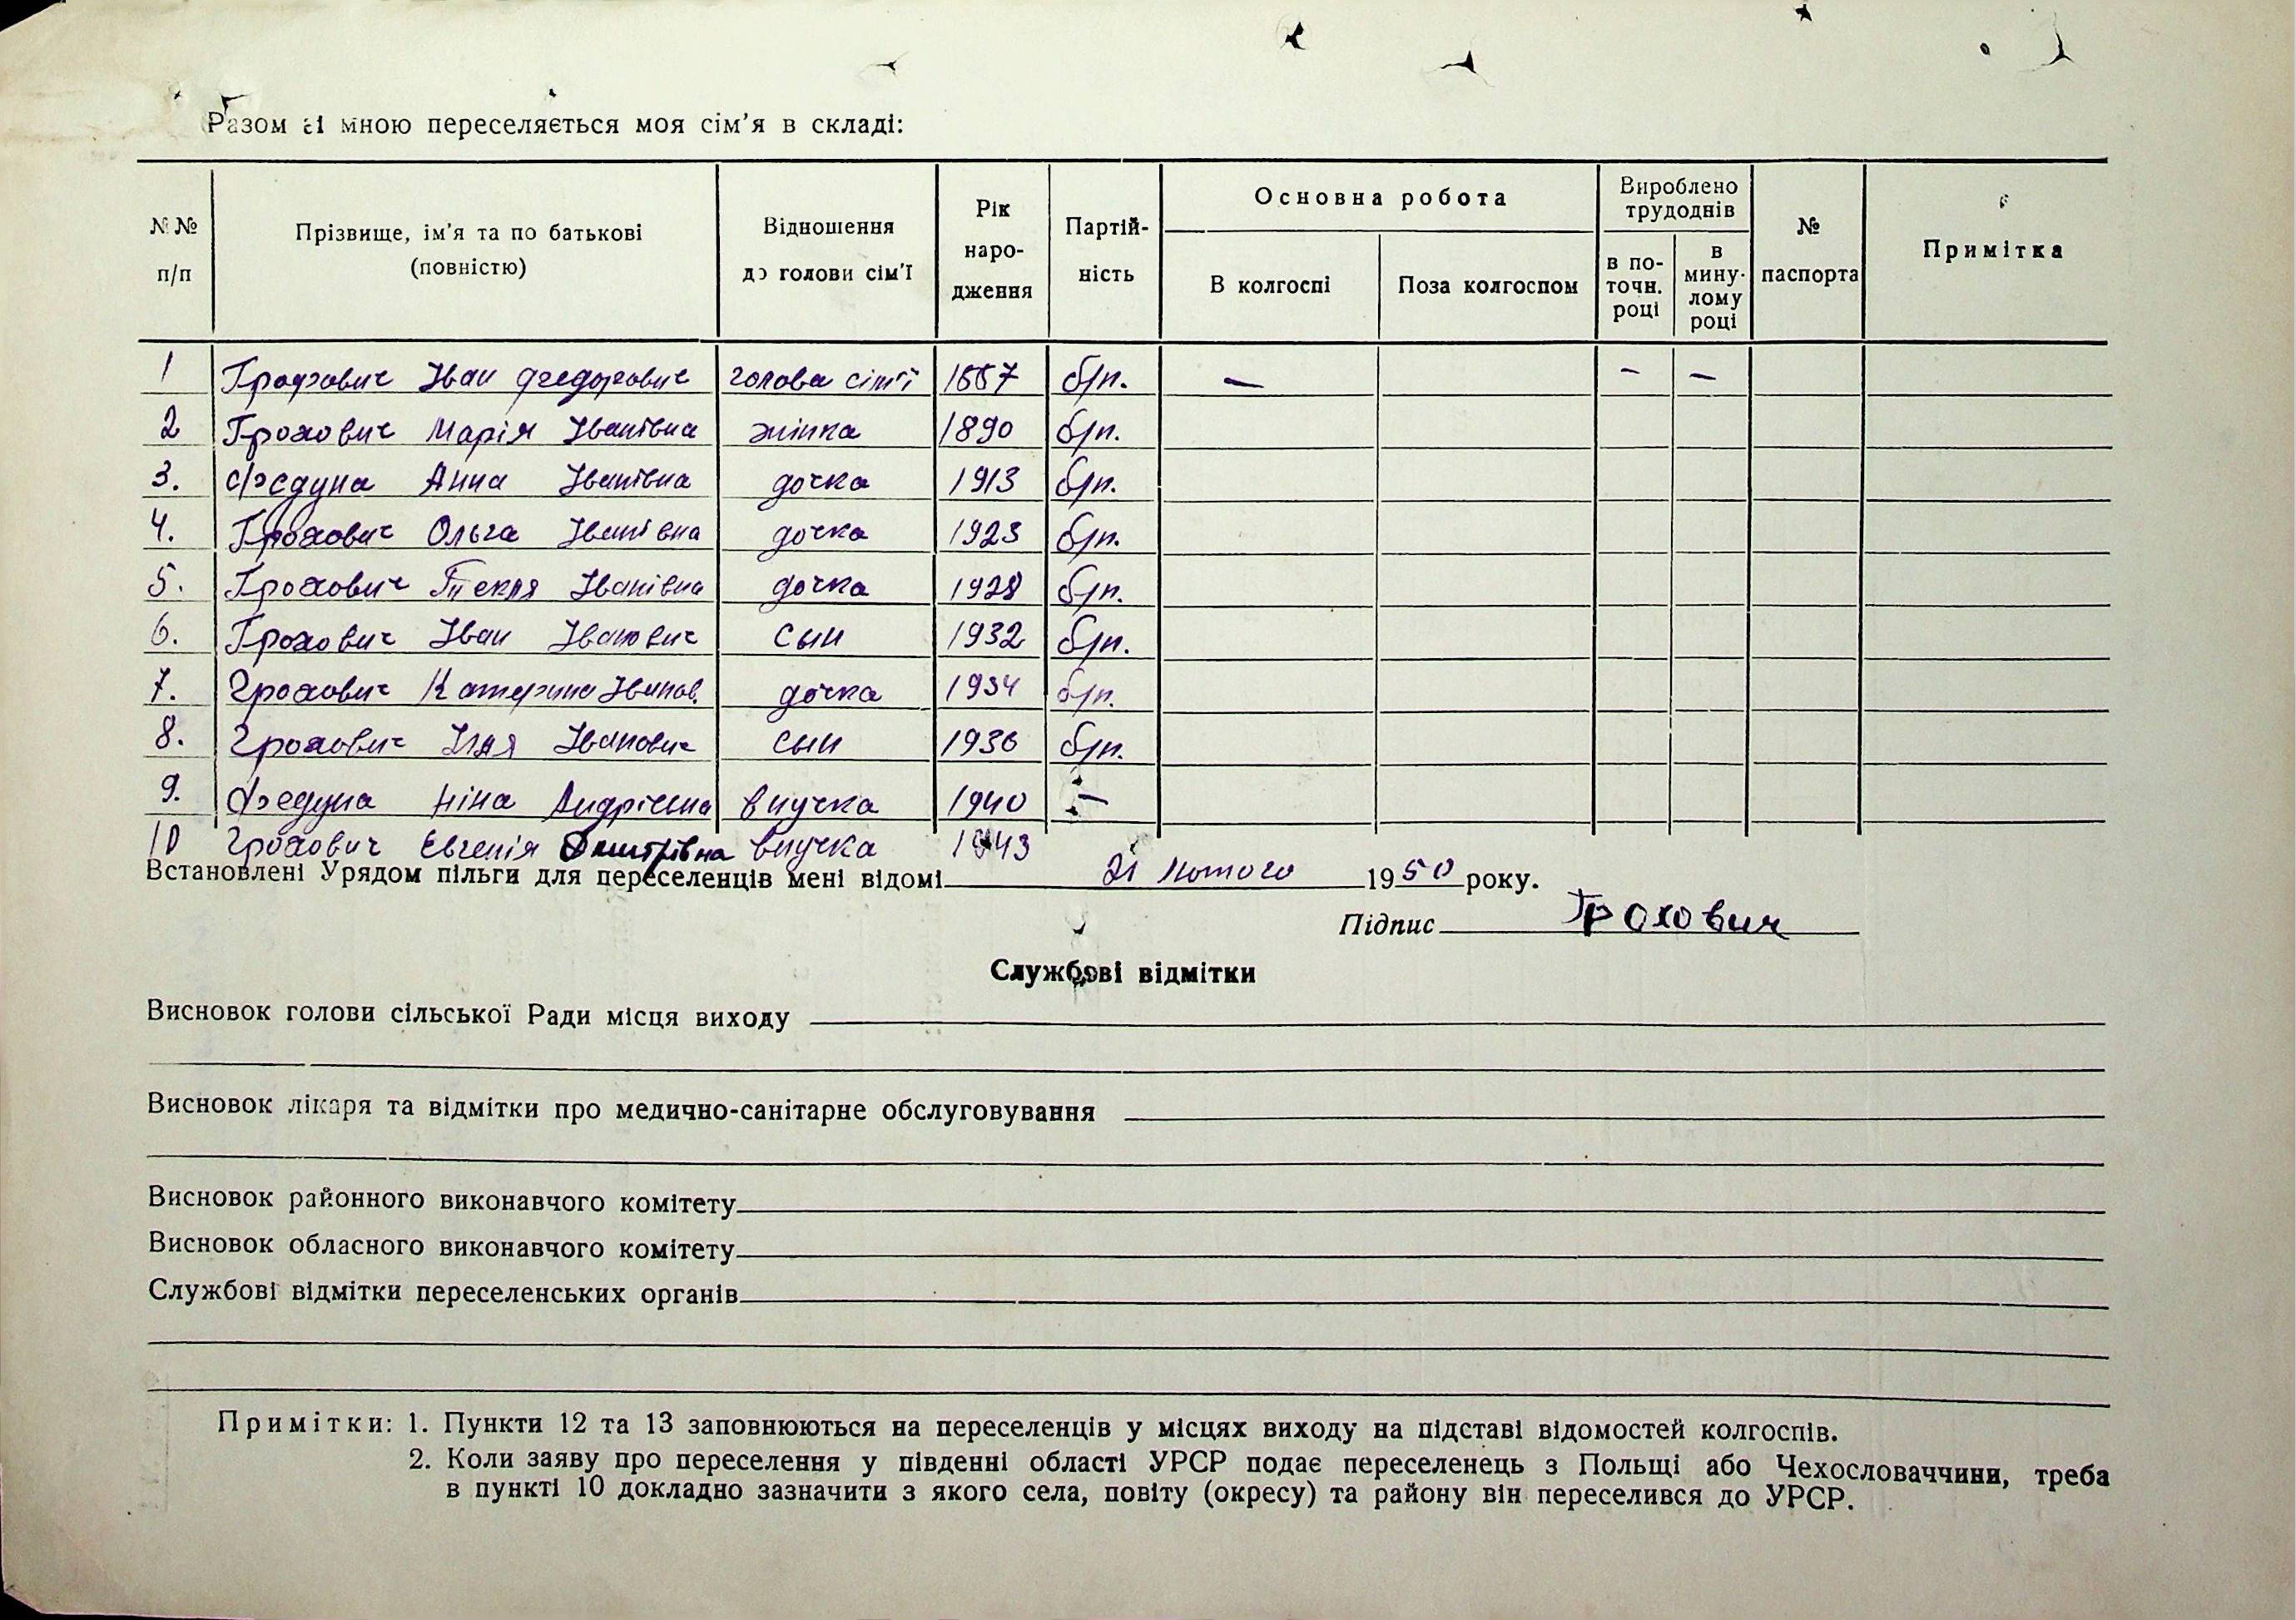 Разом зі мною переселяється моя сім'я в складі:
№№ п/п | Прізвище, ім'я та по батькові (повністю) | Відношення до голови сім'ї | Рік народження | Партійність | Основна робота | Вироблено трудоднів | № паспорта | Примітка
В колгоспі | Поза колгоспом | в поточн. році | в минулому році
1 Грохович Іван Федорович голова сім'ї 1887 б/п. — – –
2 Грохович Марія Іванівна жінка 1890 б/п.
3. Федуна Анна Іванівна дочка 1913 б/п.
4. Грохович Ольга Іванівна дочка 1923 б/п.
5. Грохович Текля Іванівна дочка 1928 б/п.
6. Грохович Іван Іванович сын 1932 б/п.
7. Грохович Катерина Іванов. дочка 1934 б/п.
8. Грохович Ілля Іванович сын 1936 б/п.
9. Федуна Ніна Андріївна внучка 1940 –
10 Грохович Евгенія Дмитрівна внучка 1943
Встановлені Урядом пільги для переселенців мені відомі 21 лютого 1950 року.
Підпис Грохович
Службові відмітки
Висновок голови сільської Ради місця виходу
Висновок лікаря та відмітки про медично-санітарне обслуговування
Висновок районного виконавчого комітету
Висновок обласного виконавчого комітету
Службові відмітки переселенських органів
Примітки: 1. Пункти 12 та 13 заповнюються на переселенців у місцях виходу на підставі відомостей колгоспів.
2. Коли заяву про переселення у південні області УРСР подає переселенець з Польщі або Чехословаччини, треба
в пункті 10 докладно зазначити з якого села, повіту (окресу) та району він переселився до УРСР.